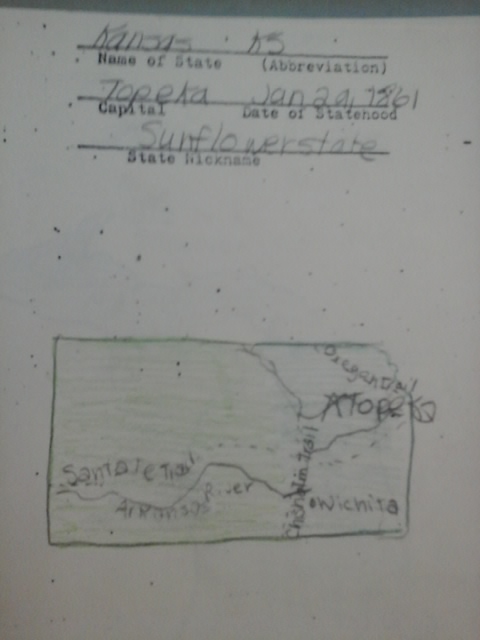 Kansas KS
Name of State (Abbreviation)
Topeka Jan 29, 1861
Capital Date of Statehood
Sunflower state
State Nickname
Oregon Trail
Topeka
Santa Fe Trail
Chisholm Trail
Arkansas River
Wichita